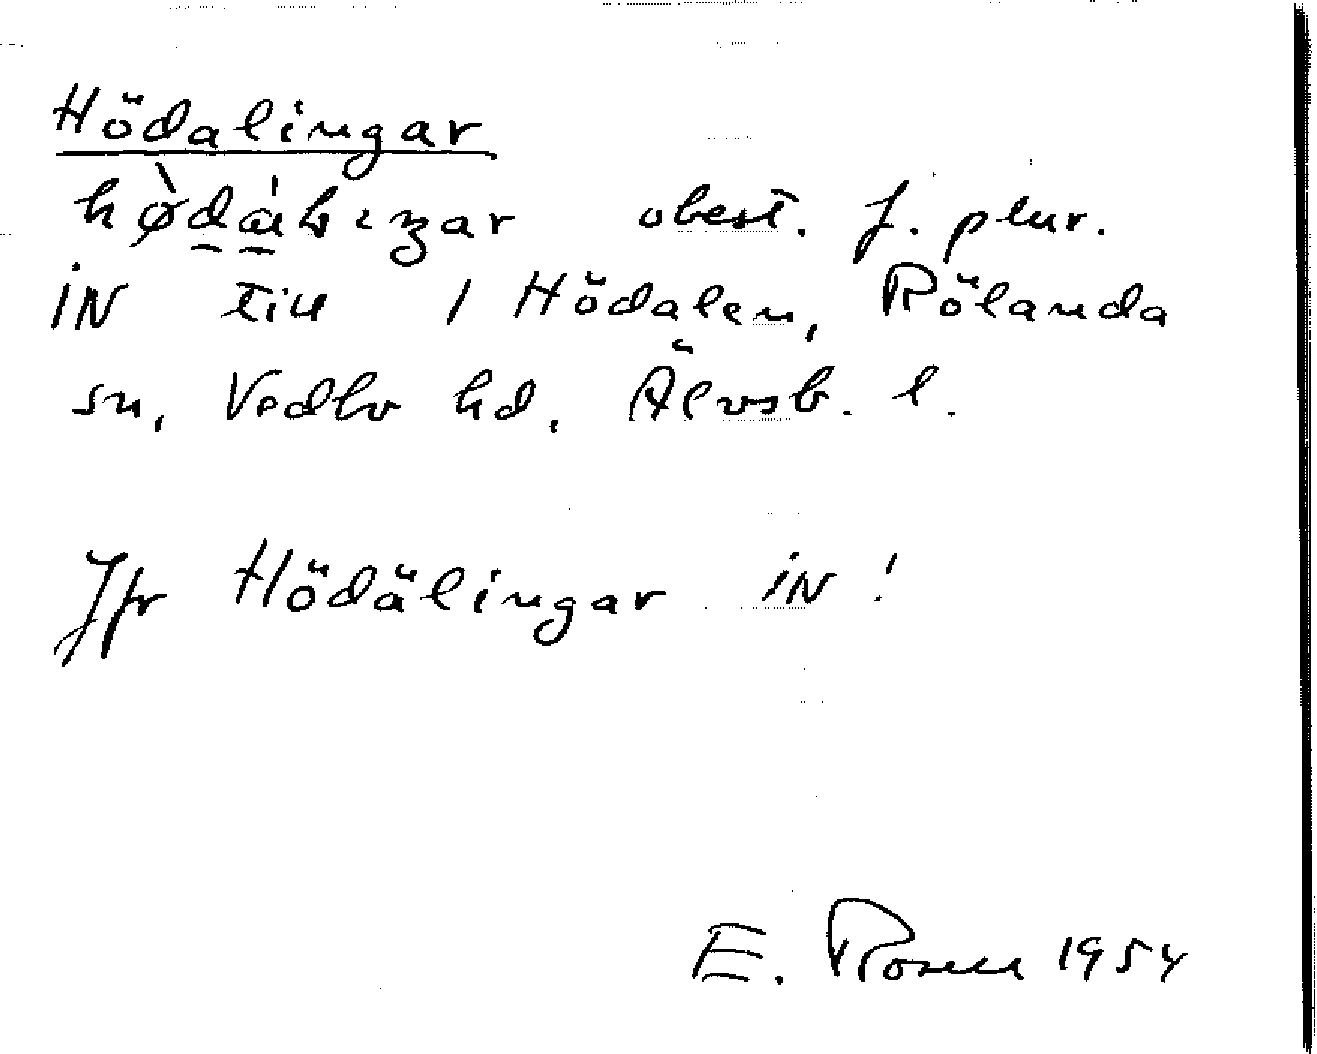 Hödalingar
obest. f. plur.
iN till 1 Hödalen, Rölanda
sn, Vedbo hd, Älvsb. l.
Jfr Hödälingar iN!
E. Rosell 1954